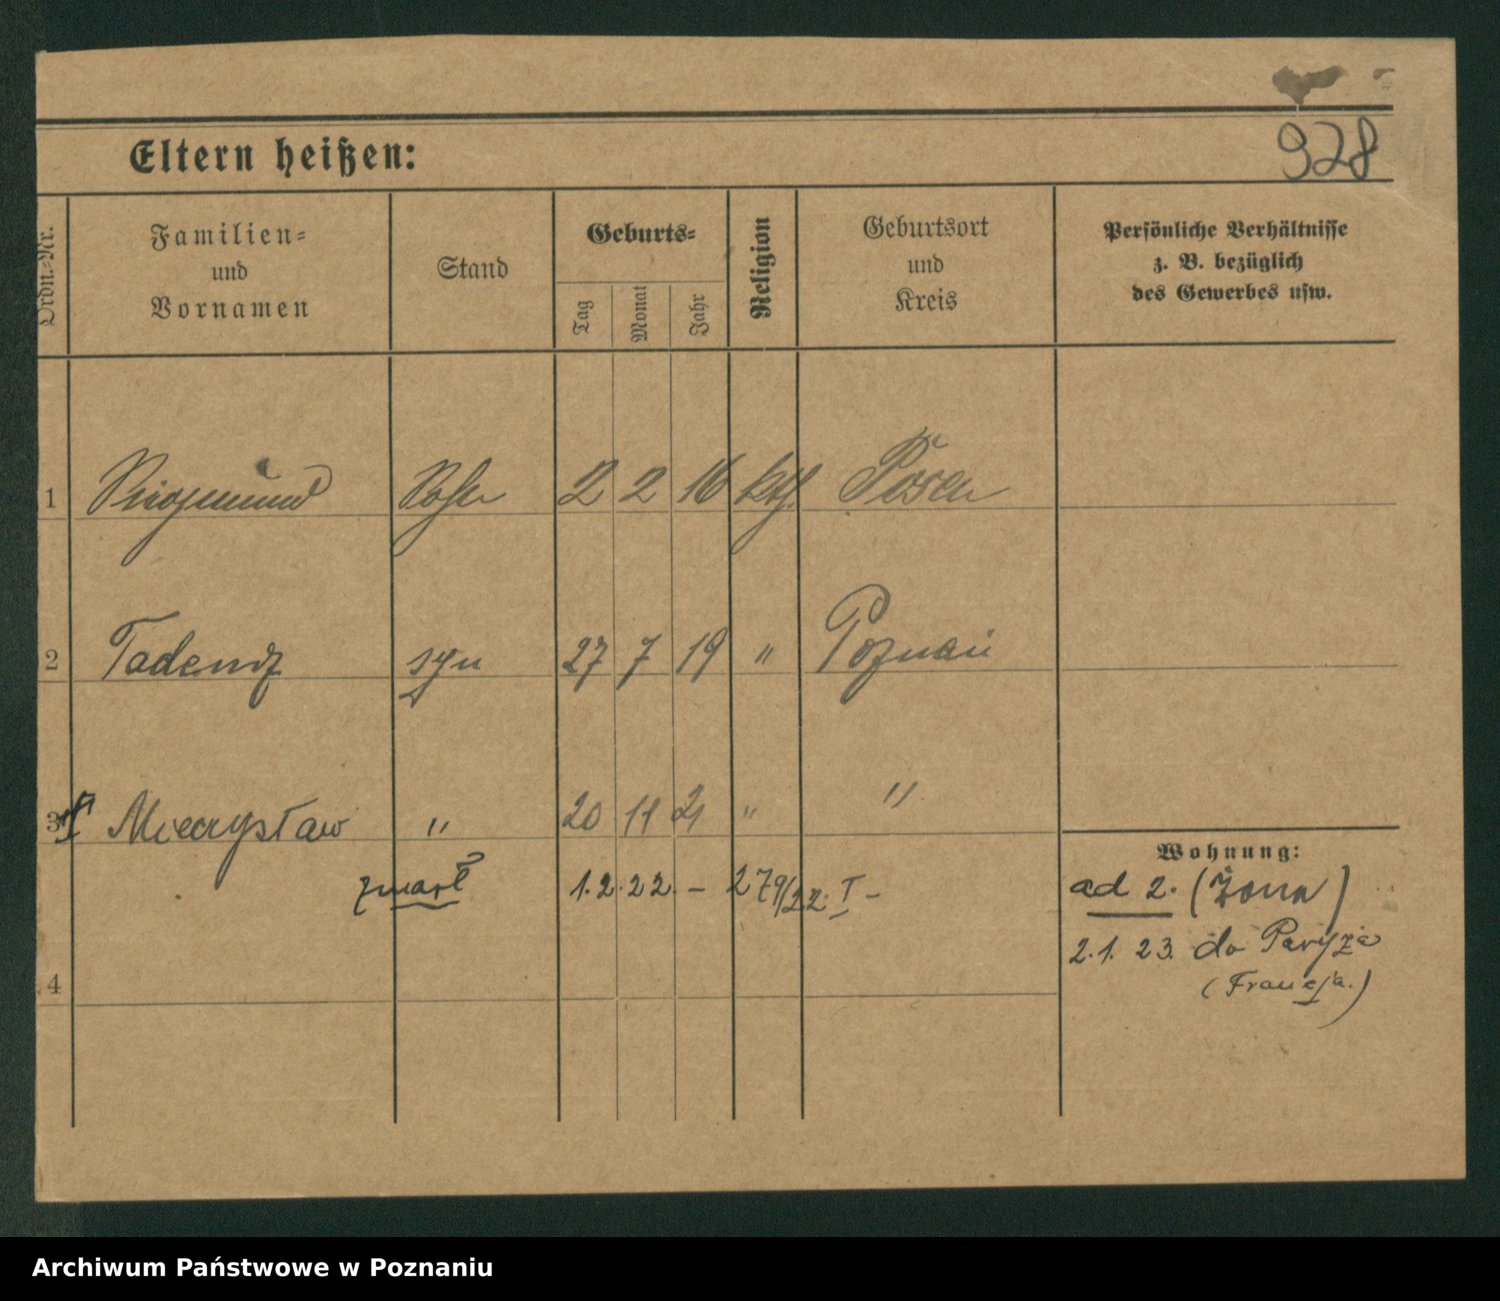 928
Eltern heißen:
Ordn.-Nr.
Familien-
und
Vornamen
Stand
Geburts-
Tag
Monat
Jahr
Religion
Geburtsort
und
Kreis
Persönliche Verhältnisse
z. B. bezüglich
des Gewerbes usw.
1 Sohn 2 2 16 kth. Posen
2 Tadeusz syn 27 7 19 " Poznań
3 Mieczysław " 20 11 21 " "
zmarł 1.2.22. – 279/22 I –
4
Wohnung:
ad 2. (żona)
2.1.23. do Paryża
(Francja.)
Archiwum Państwowe w Poznaniu